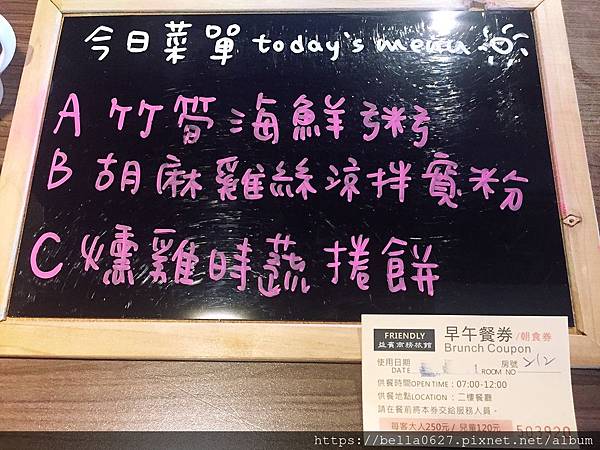 今日菜單 today's menu
A 竹筍海鮮粥
B 胡麻雞絲涼拌寬粉
C 燻雞時蔬捲餅
FRIENDLY
益賓商務旅館
早午餐券/朝食券
Brunch Coupon
使用日期
DATE
房號
ROOM NO 212
供餐時間OPEN TIME：07:00-12:00
供餐地點LOCATION：二樓餐廳
請在餐前將本券交給服務人員。
每客大人250元 / 兒童120元
503920
https://bella0627.pixnet.net/album